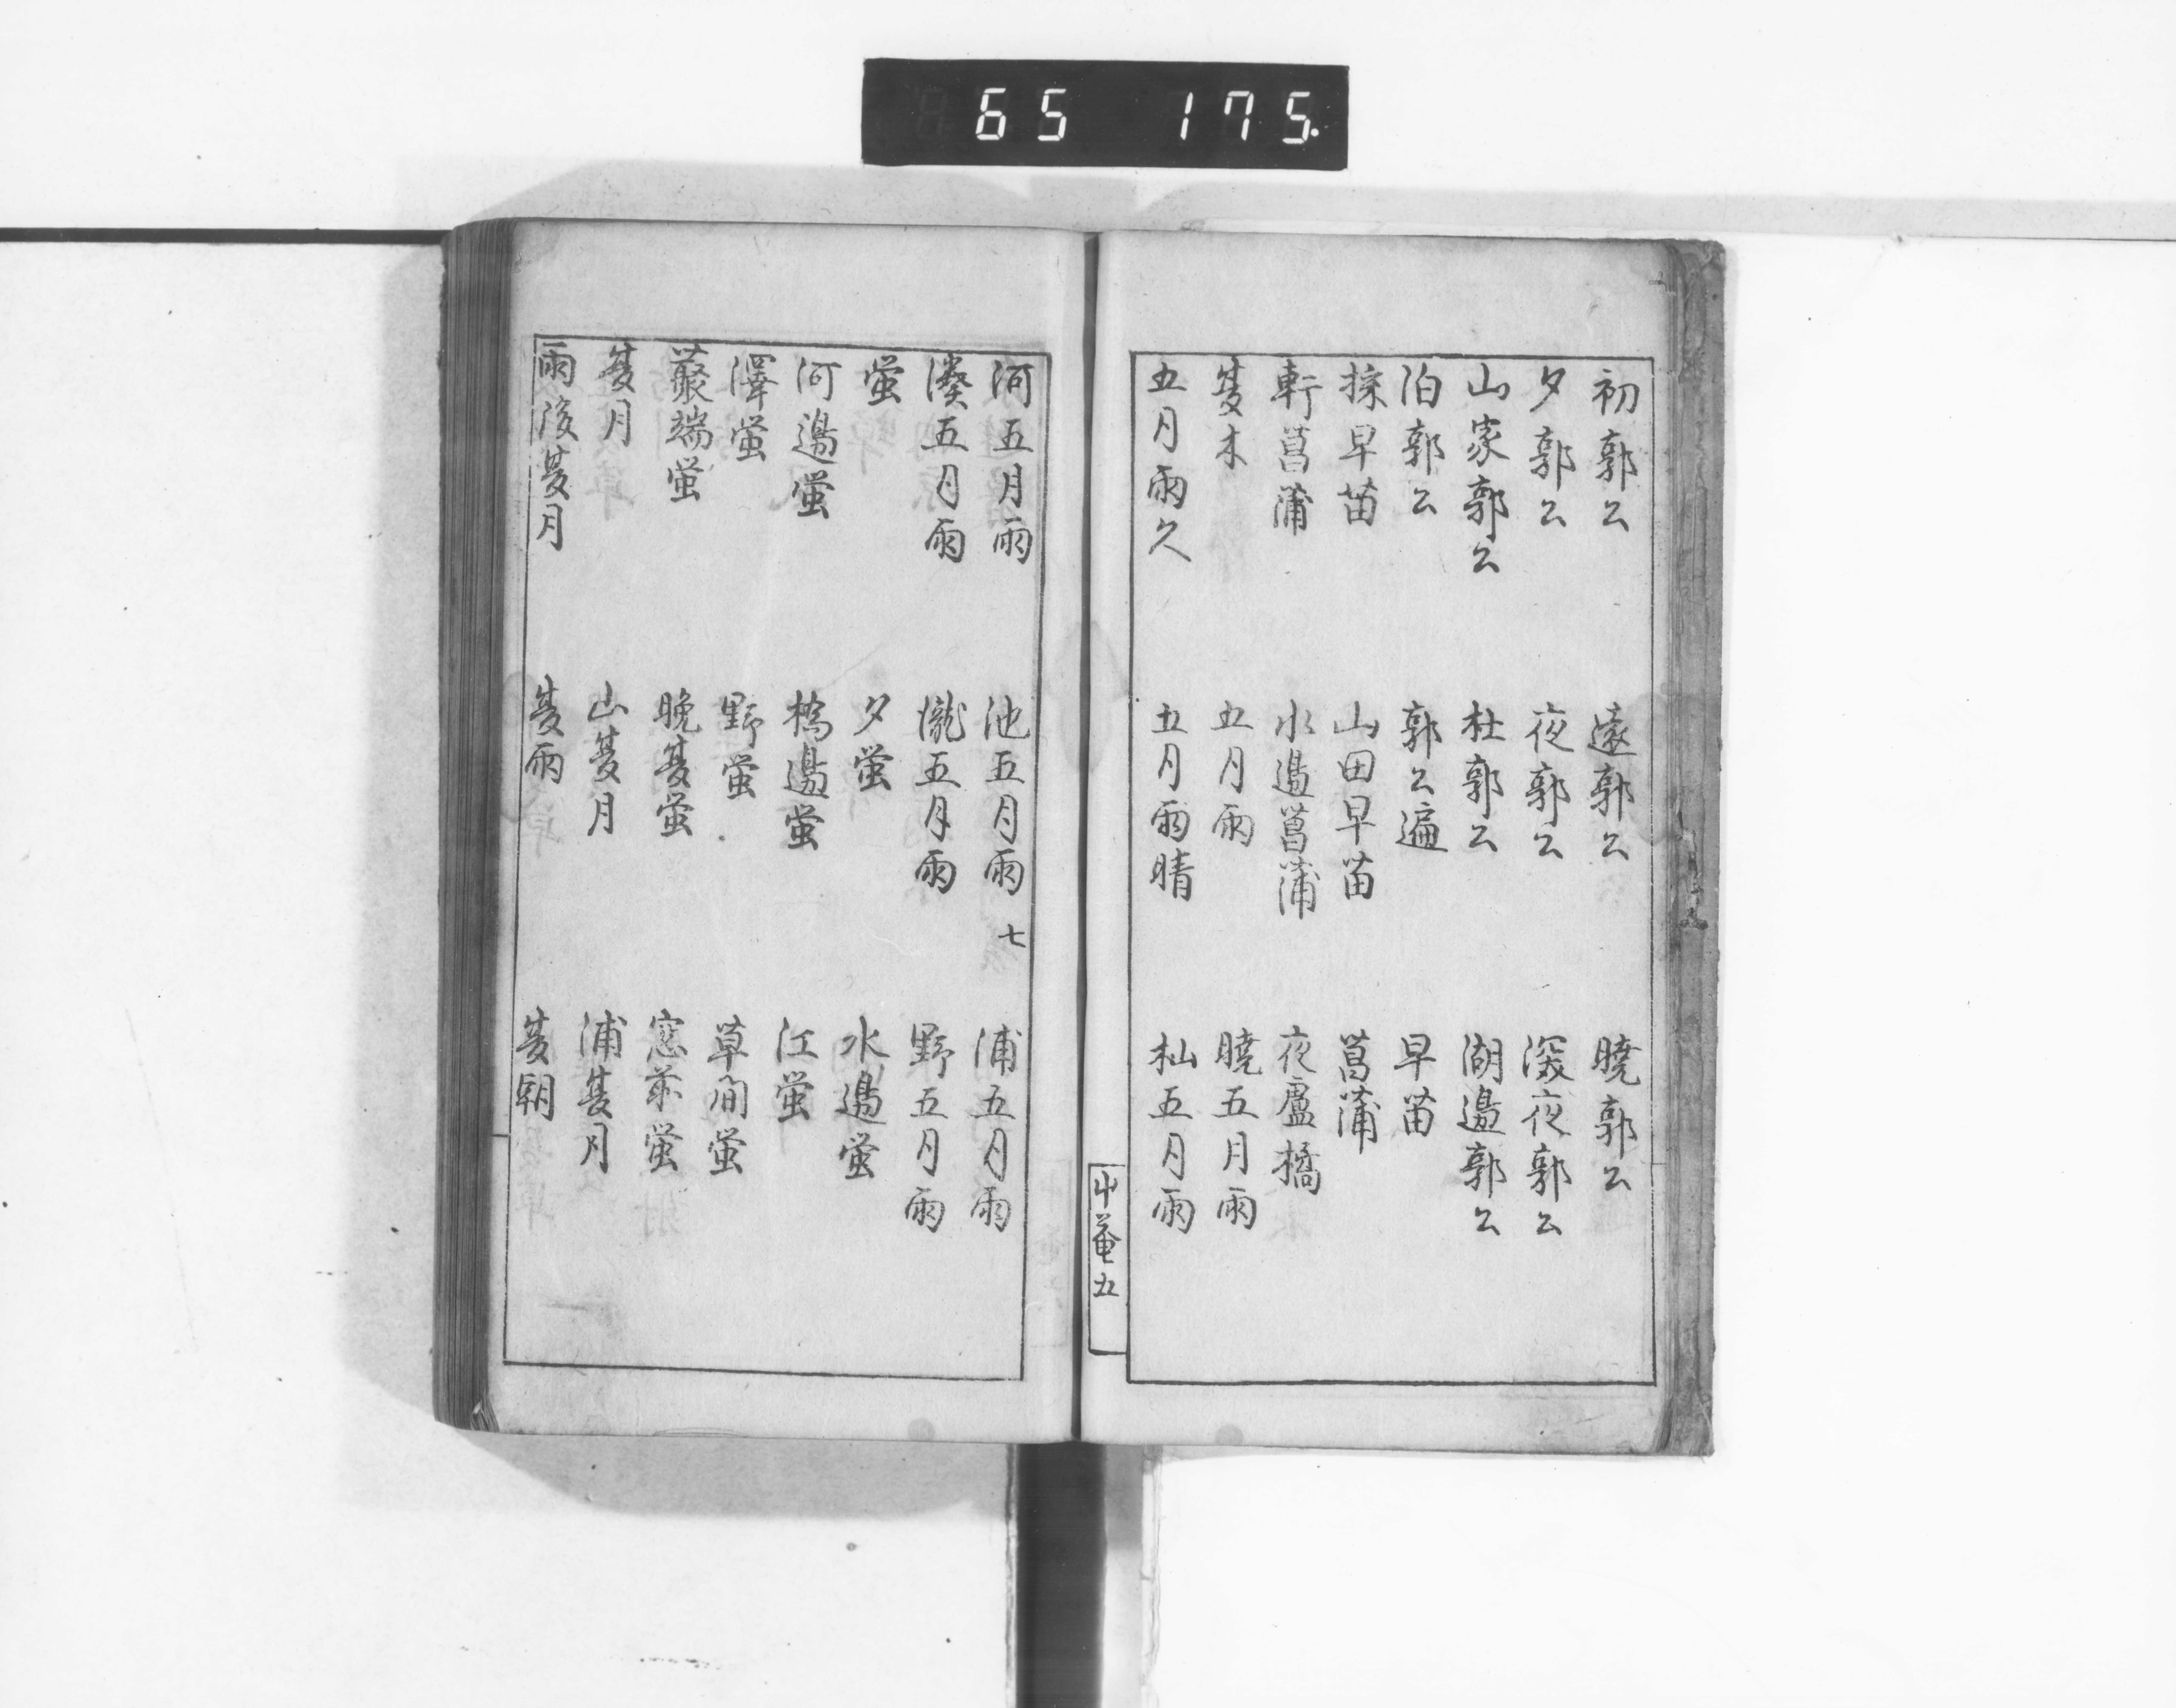 65 175.
初郭公 遠郭公 曉郭公
夕郭公 夜郭公 深夜郭公
山家郭公 杜郭公 湖邊郭公
泊郭公 郭公遍 早苗
採早苗 山田早苗 菖蒲
軒菖蒲 水邊菖蒲 夜盧橘
夏木 五月雨 曉五月雨
五月雨久 五月雨晴 杣五月雨
屮菴五
河五月雨 池五月雨 七 浦五月雨
湊五月雨 瀧五月雨 野五月雨
蛍 夕蛍 水邊蛍
河邊蛍 橋邊蛍 江蛍
澤蛍 野蛍 草間蛍
叢端蛍 晩夏蛍 窓前蛍
夏月 山夏月 浦夏月
雨後夏月 夏雨 夏朝